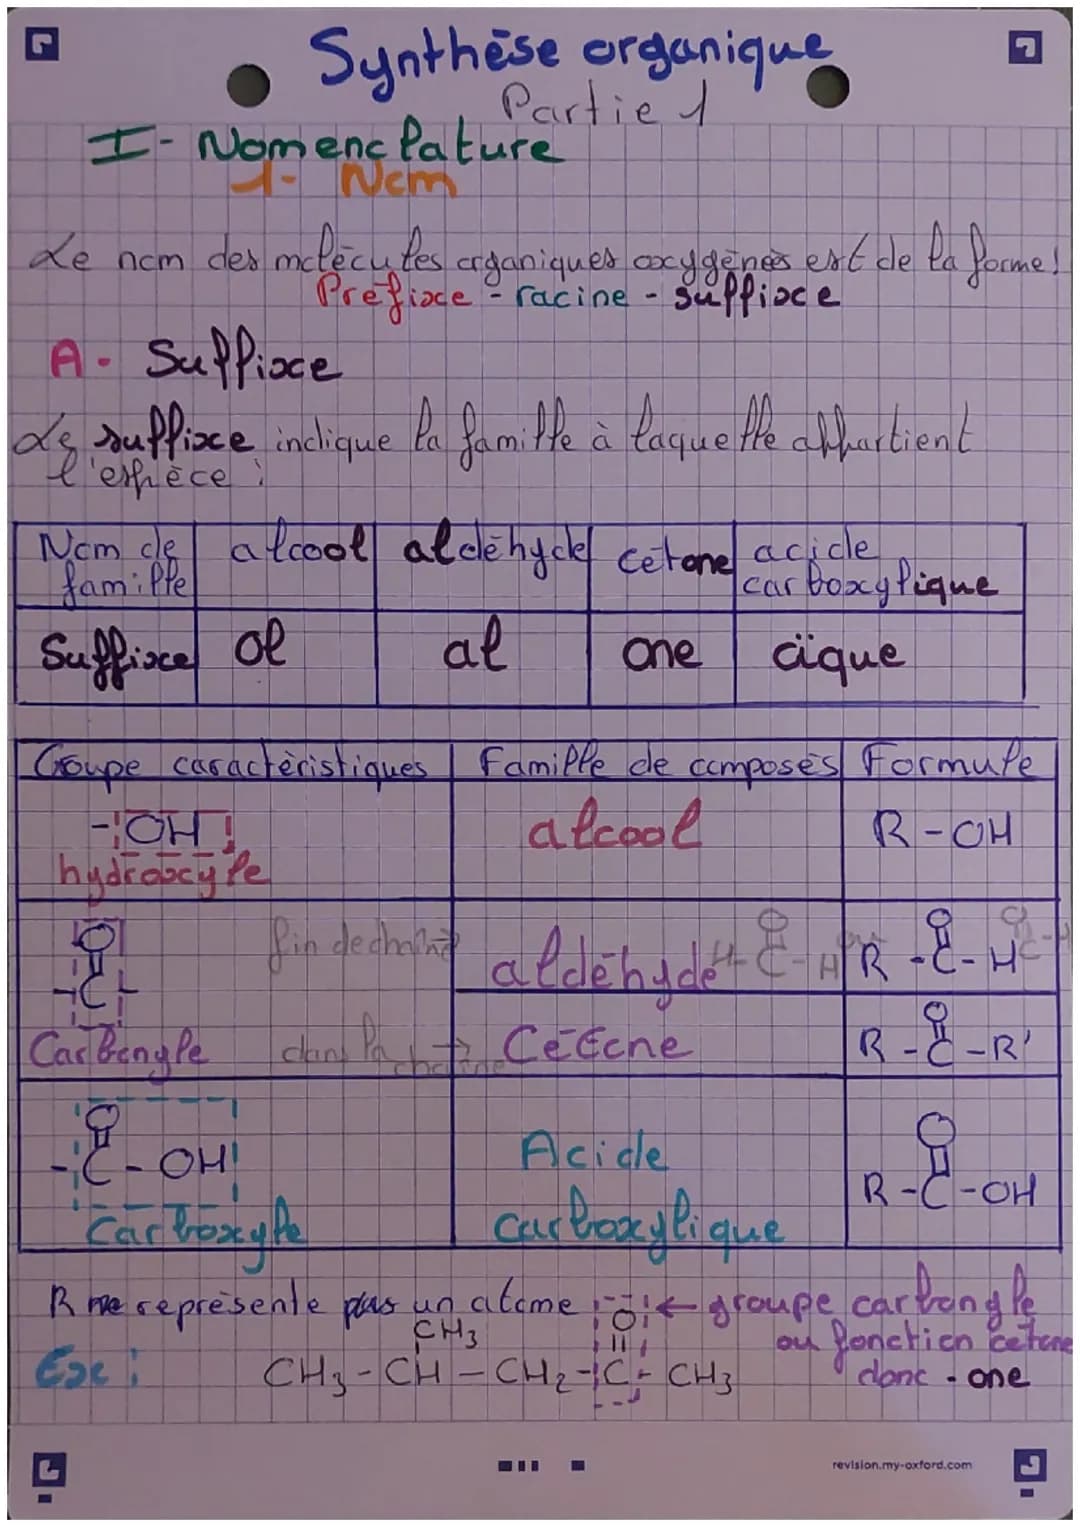 Synthèse organique
Partie 1
I- Nomenclature
1- Nom
Le nom des molécules organiques oxygénées est de la forme!
Préfixe - racine - suffixe
A- Suffixe
Le suffixe indique la famille à laquelle appartient
l'espèce :
Nom de famille | alcool | aldéhyde | cétone | acide carboxylique
Suffixe | ol | al | one | oïque
Groupe caractéristiques | Famille de composés | Formule
-OH | alcool | R-OH
hydroxyle
O
-C- fin de chaîne → aldéhyde H-C-H R-C-H
Carbonyle dans la chaîne → Cétone R-C-R'
O
-C-OH Acide R-C-OH
Carboxyle carboxylique
R ne représente pas un atome O ← groupe carbonyle
CH3 ou fonction cétone
Ex : CH3-CH-CH2-C-CH3 donc -one
revision.my-oxford.com